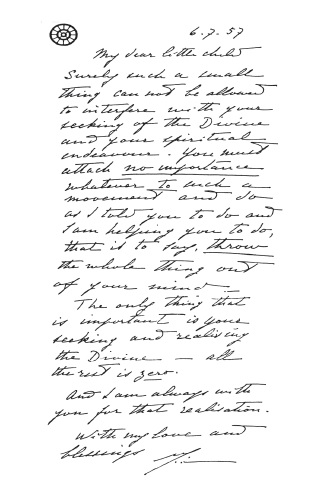 6.7.57
My dear little child
Surely such a small
thing can not be allowed
to interfere with your
seeking of the Divine
and your spiritual
endeavour. You must
attach no importance
whatever to such a
movement and do
as I told you to do and
I am helping you to do,
that is to say, throw
the whole thing out
of your mind —
The only thing that
is important is your
seeking and realising
the Divine — all
the rest is zero.
And I am always with
you for that realisation.
With my love and
blessings